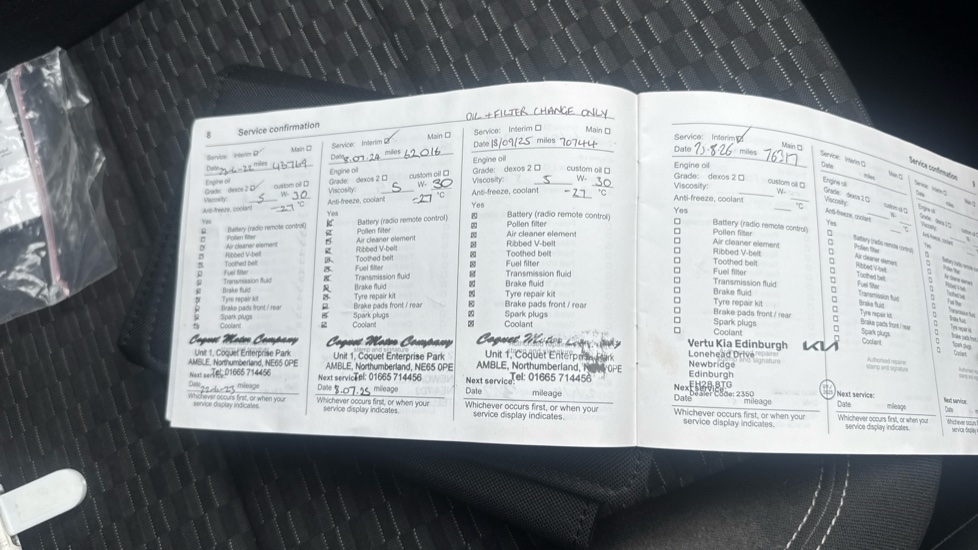 8 Service confirmation
Service: Interim Main
Date miles
Engine oil
Grade: dexos 2 custom oil
Viscosity: 5 W- 30
Anti-freeze, coolant -27 °C
Yes
Battery (radio remote control)
Pollen filter
Air cleaner element
Ribbed V-belt
Toothed belt
Fuel filter
Transmission fluid
Brake fluid
Tyre repair kit
Brake pads front / rear
Spark plugs
Coolant
Coquet Motor Company
Unit 1, Coquet Enterprise Park
AMBLE, Northumberland, NE65 0PE
Next service: Tel: 01665 714456
Date mileage
Whichever occurs first, or when your
service display indicates.
Service: Interim Main
Date 8.07.24 miles 62016
Engine oil
Grade: dexos 2 custom oil
Viscosity: 5 W- 30
Anti-freeze, coolant -27 °C
Yes
Battery (radio remote control)
Pollen filter
Air cleaner element
Ribbed V-belt
Toothed belt
Fuel filter
Transmission fluid
Brake fluid
Tyre repair kit
Brake pads front / rear
Spark plugs
Coolant
Coquet Motor Company
Unit 1, Coquet Enterprise Park
AMBLE, Northumberland, NE65 0PE
Next service: Tel: 01665 714456
Date 8.07.25 mileage
Whichever occurs first, or when your
service display indicates.
OIL + FILTER CHANGE ONLY
Service: Interim Main
Date 18/09/25 miles 70744
Engine oil
Grade: dexos 2 custom oil
Viscosity: 5 W- 30
Anti-freeze, coolant -27 °C
Yes
Battery (radio remote control)
Pollen filter
Air cleaner element
Ribbed V-belt
Toothed belt
Fuel filter
Transmission fluid
Brake fluid
Tyre repair kit
Brake pads front / rear
Spark plugs
Coolant
Coquet Motor Company
Unit 1, Coquet Enterprise Park
AMBLE, Northumberland,
Next service: Tel: 01665 714456
Date mileage
Whichever occurs first, or when your
service display indicates.
Service: Interim Main
Date miles 76317
Engine oil
Grade: dexos 2 custom oil
Viscosity: W-
Anti-freeze, coolant °C
Yes
Battery (radio remote control)
Pollen filter
Air cleaner element
Ribbed V-belt
Toothed belt
Fuel filter
Transmission fluid
Brake fluid
Tyre repair kit
Brake pads front / rear
Spark plugs
Coolant
Vertu Kia Edinburgh KIA
Lonehead Drive
Newbridge
Edinburgh
EH28 8TG
Next service:
Dealer Code: 2350
Date mileage
Whichever occurs first, or when your
service display indicates.
Service: Interim Main
Date miles
Engine oil
Grade: dexos 2 custom oil
Viscosity: W-
Anti-freeze, coolant °C
Yes
Battery (radio remote control)
Pollen filter
Air cleaner element
Ribbed V-belt
Toothed belt
Fuel filter
Transmission fluid
Brake fluid
Tyre repair kit
Brake pads front / rear
Spark plugs
Coolant
Authorised repairer
stamp and signature
Next service:
Date mileage
Whichever occurs first, or when your
service display indicates.
Service confirmation